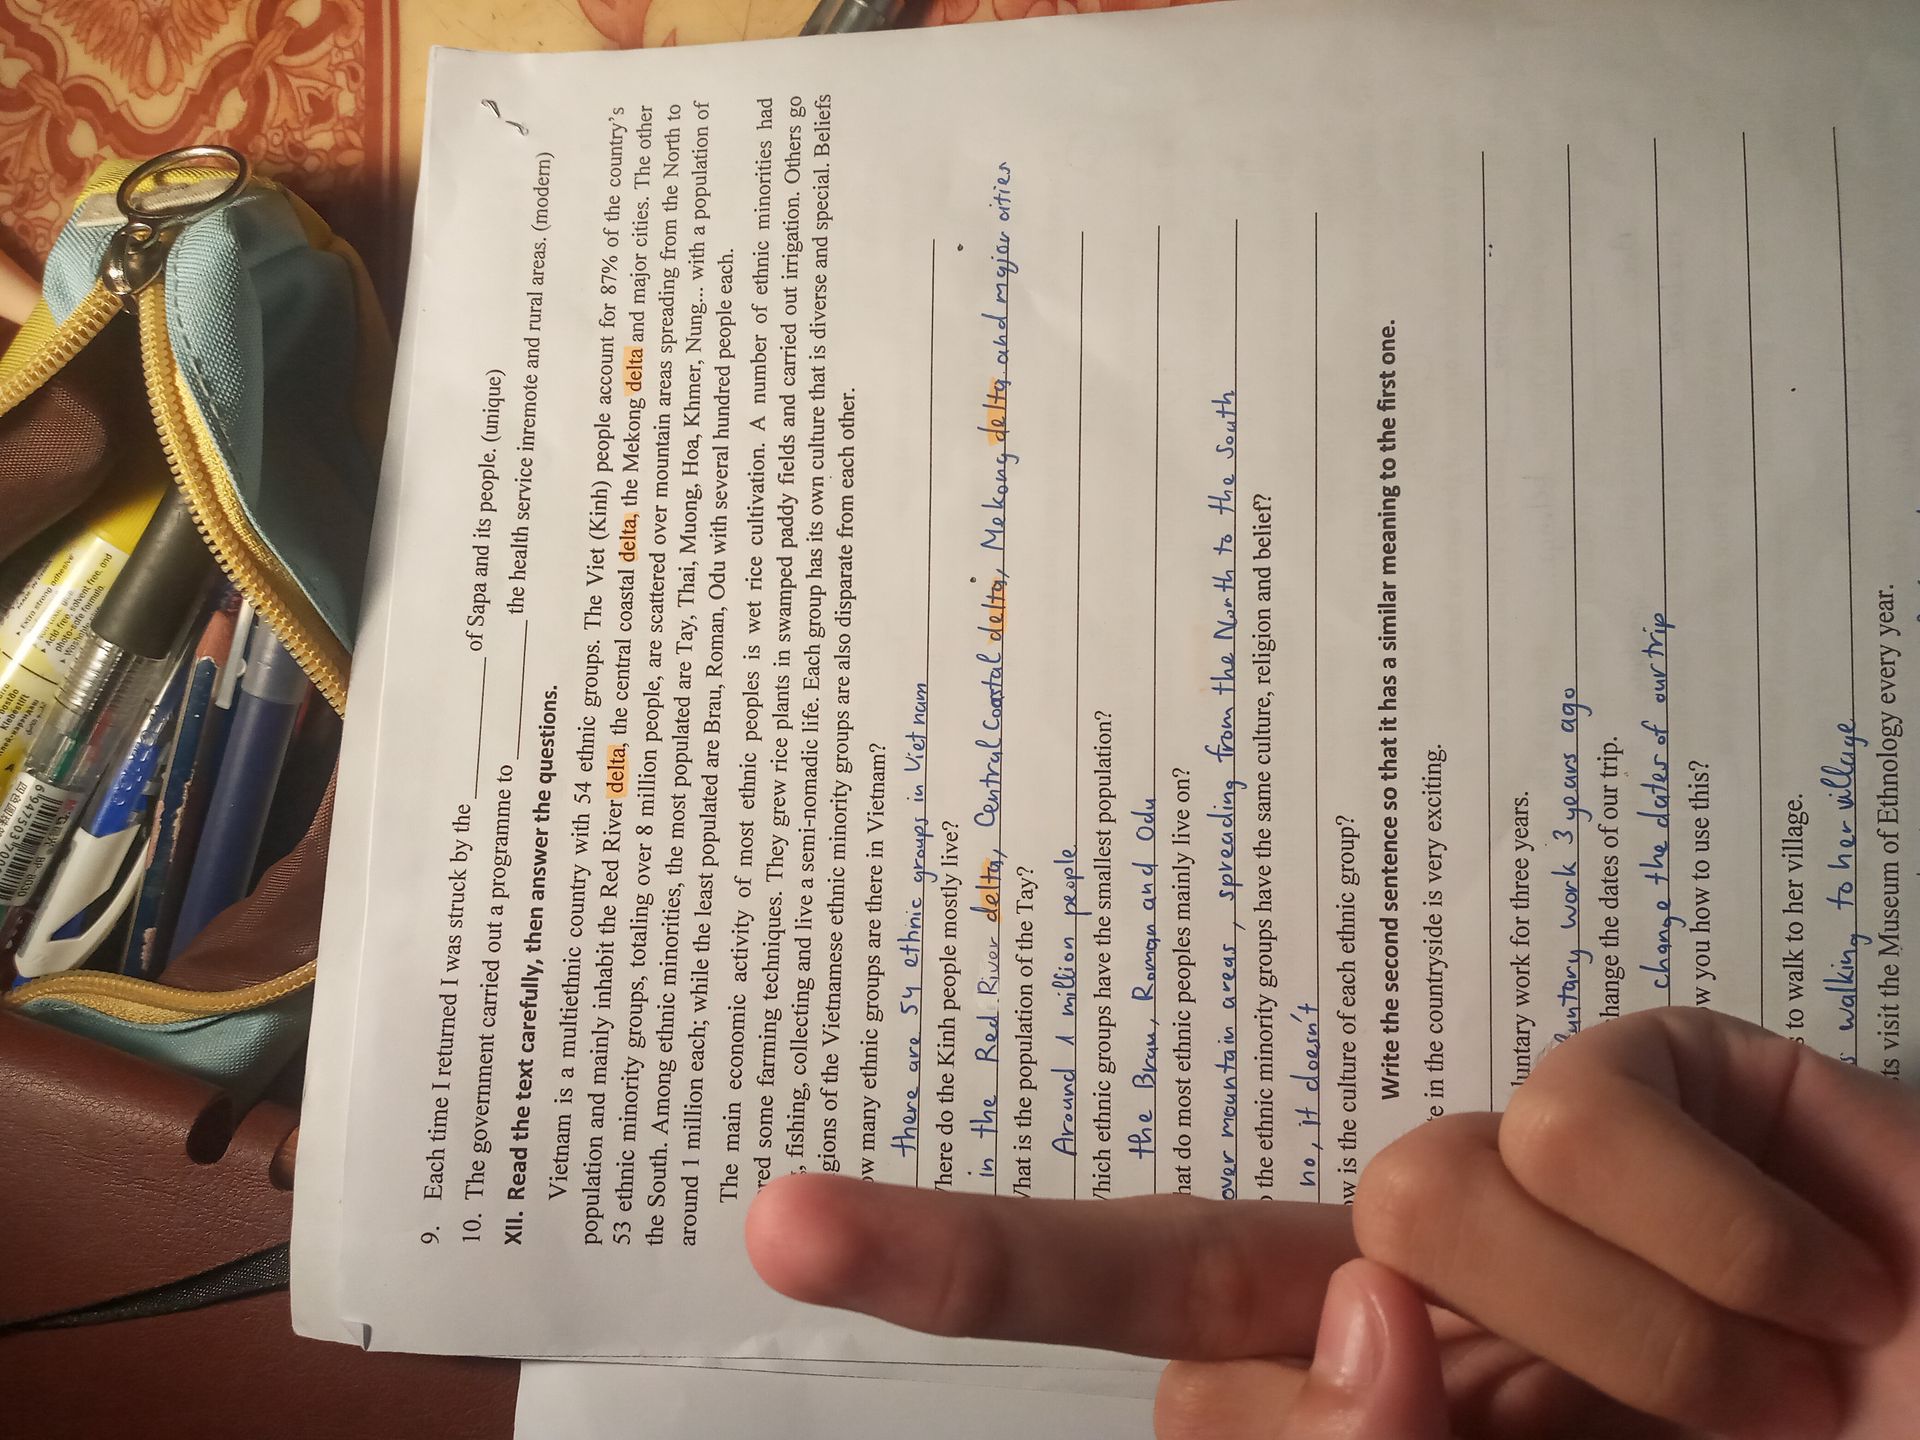 9. Each time I returned I was struck by the ________ of Sapa and its people. (unique)
10. The government carried out a programme to ________ the health service inremote and rural areas. (modern)
XII. Read the text carefully, then answer the questions.
Vietnam is a multiethnic country with 54 ethnic groups. The Viet (Kinh) people account for 87% of the country's
population and mainly inhabit the Red River delta, the central coastal delta, the Mekong delta and major cities. The other
53 ethnic minority groups, totaling over 8 million people, are scattered over mountain areas spreading from the North to
the South. Among ethnic minorities, the most populated are Tay, Thai, Muong, Hoa, Khmer, Nung... with a population of
around 1 million each; while the least populated are Brau, Roman, Odu with several hundred people each.
The main economic activity of most ethnic peoples is wet rice cultivation. A number of ethnic minorities had
red some farming techniques. They grew rice plants in swamped paddy fields and carried out irrigation. Others go
, fishing, collecting and live a semi-nomadic life. Each group has its own culture that is diverse and special. Beliefs
gions of the Vietnamese ethnic minority groups are also disparate from each other.
ow many ethnic groups are there in Vietnam?
there are 54 ethnic groups in Vietnam
here do the Kinh people mostly live?
in the Red River delta, Central Coastal delta, Mekong delta and major cities
hat is the population of the Tay?
Around 1 million people
hich ethnic groups have the smallest population?
the Brau, Roman and Odu
hat do most ethnic peoples mainly live on?
over mountain areas, spreading from the North to the South
the ethnic minority groups have the same culture, religion and belief?
no, it doesn't
ow is the culture of each ethnic group?
Write the second sentence so that it has a similar meaning to the first one.
e in the countryside is very exciting.
luntary work for three years.
untary work 3 years ago
hange the dates of our trip.
change the dates of our trip
ow you how to use this?
s to walk to her village.
walking to her village
ts visit the Museum of Ethnology every year.